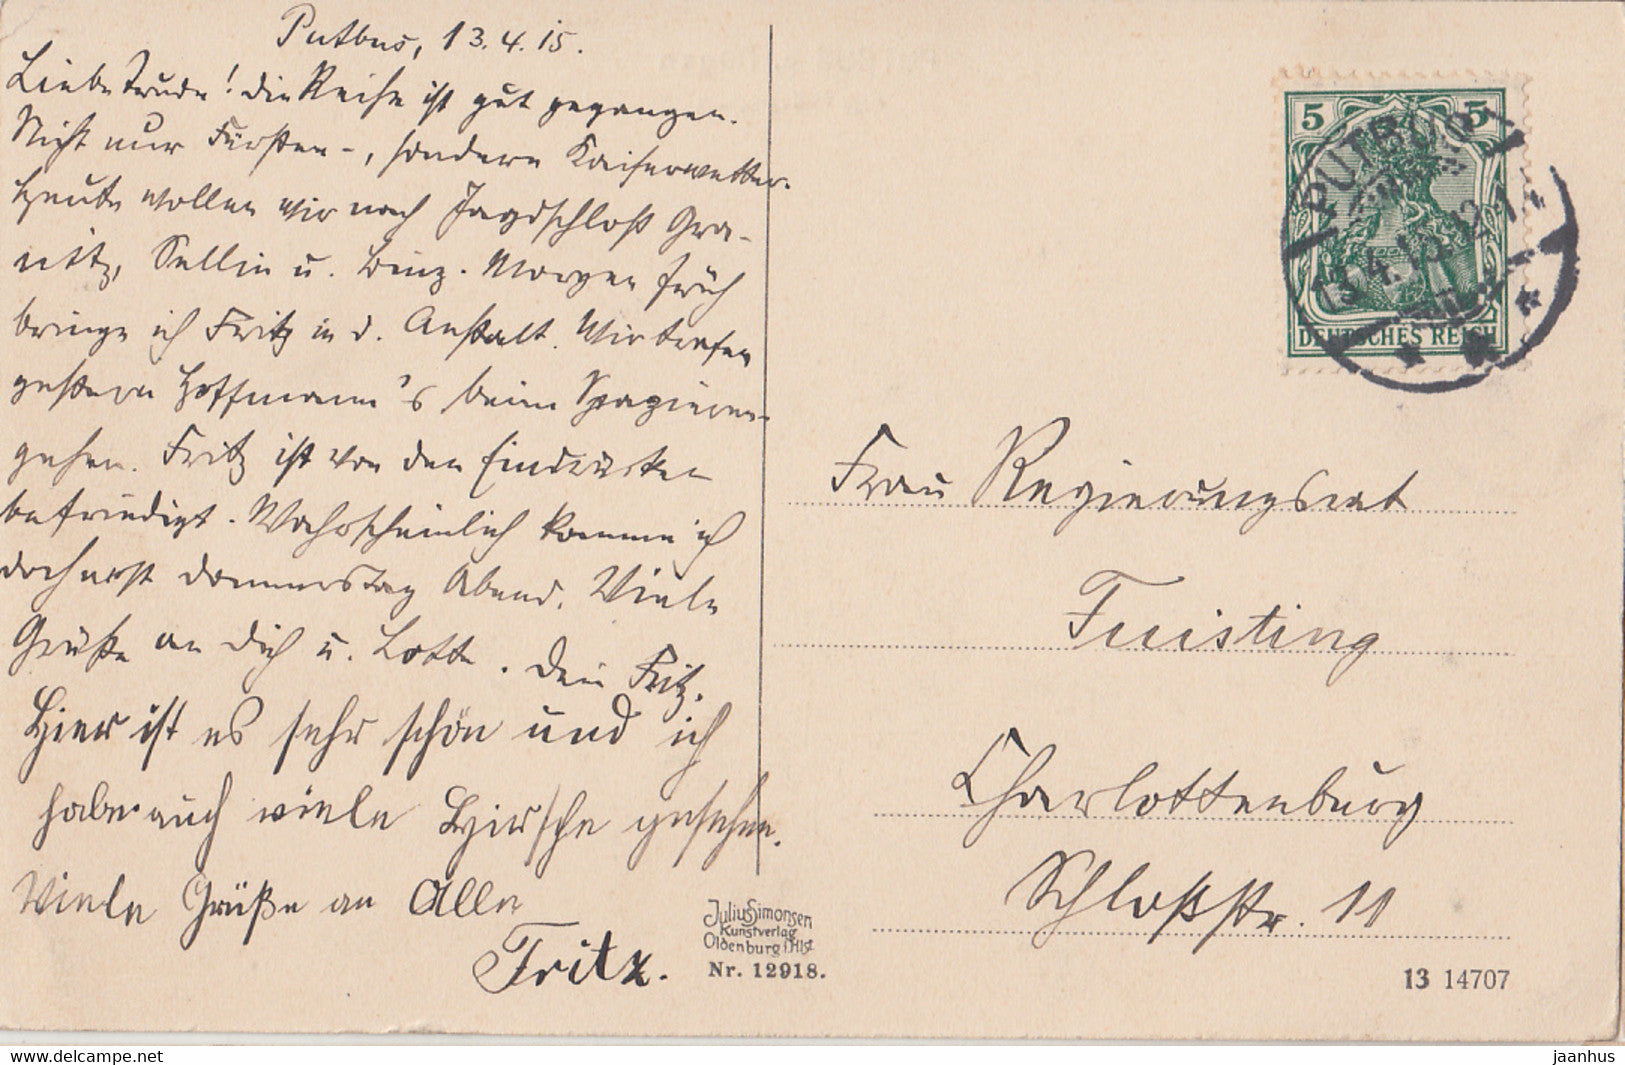 Putbus, 13.4.15.
Liebe Trude! Die Reise ist gut gegangen.
Nicht nur Fürsten-, sondern Kaiserwetter.
Heute wollen wir nach Jagdschloß Gra-
nitz, Sellin u. Binz. Morgen früh
bringe ich Fritz in d. Anstalt. Wir trafen
gestern Hoffmann's beim Spazieren-
gehen. Fritz ist von den Eindrücken
befriedigt. Wahrscheinlich komme ich
doch erst Donnerstag Abend. Viele
Grüße an Dich u. Lotte. Dein Fritz.
Hier ist es sehr schön und ich
habe auch viele Hirsche gesehen.
Viele Grüße an Alle
Fritz.
Julius Simonsen
Kunstverlag
Oldenburg i. Hlst
Nr. 12918.
5 5
DEUTSCHES REICH
PUTBUS
13.4.15. 12-1
Frau Regierungsrat
Tuisting
Charlottenburg
Schloßstr. 11
13 14707
www.delcampe.net
jaanhus